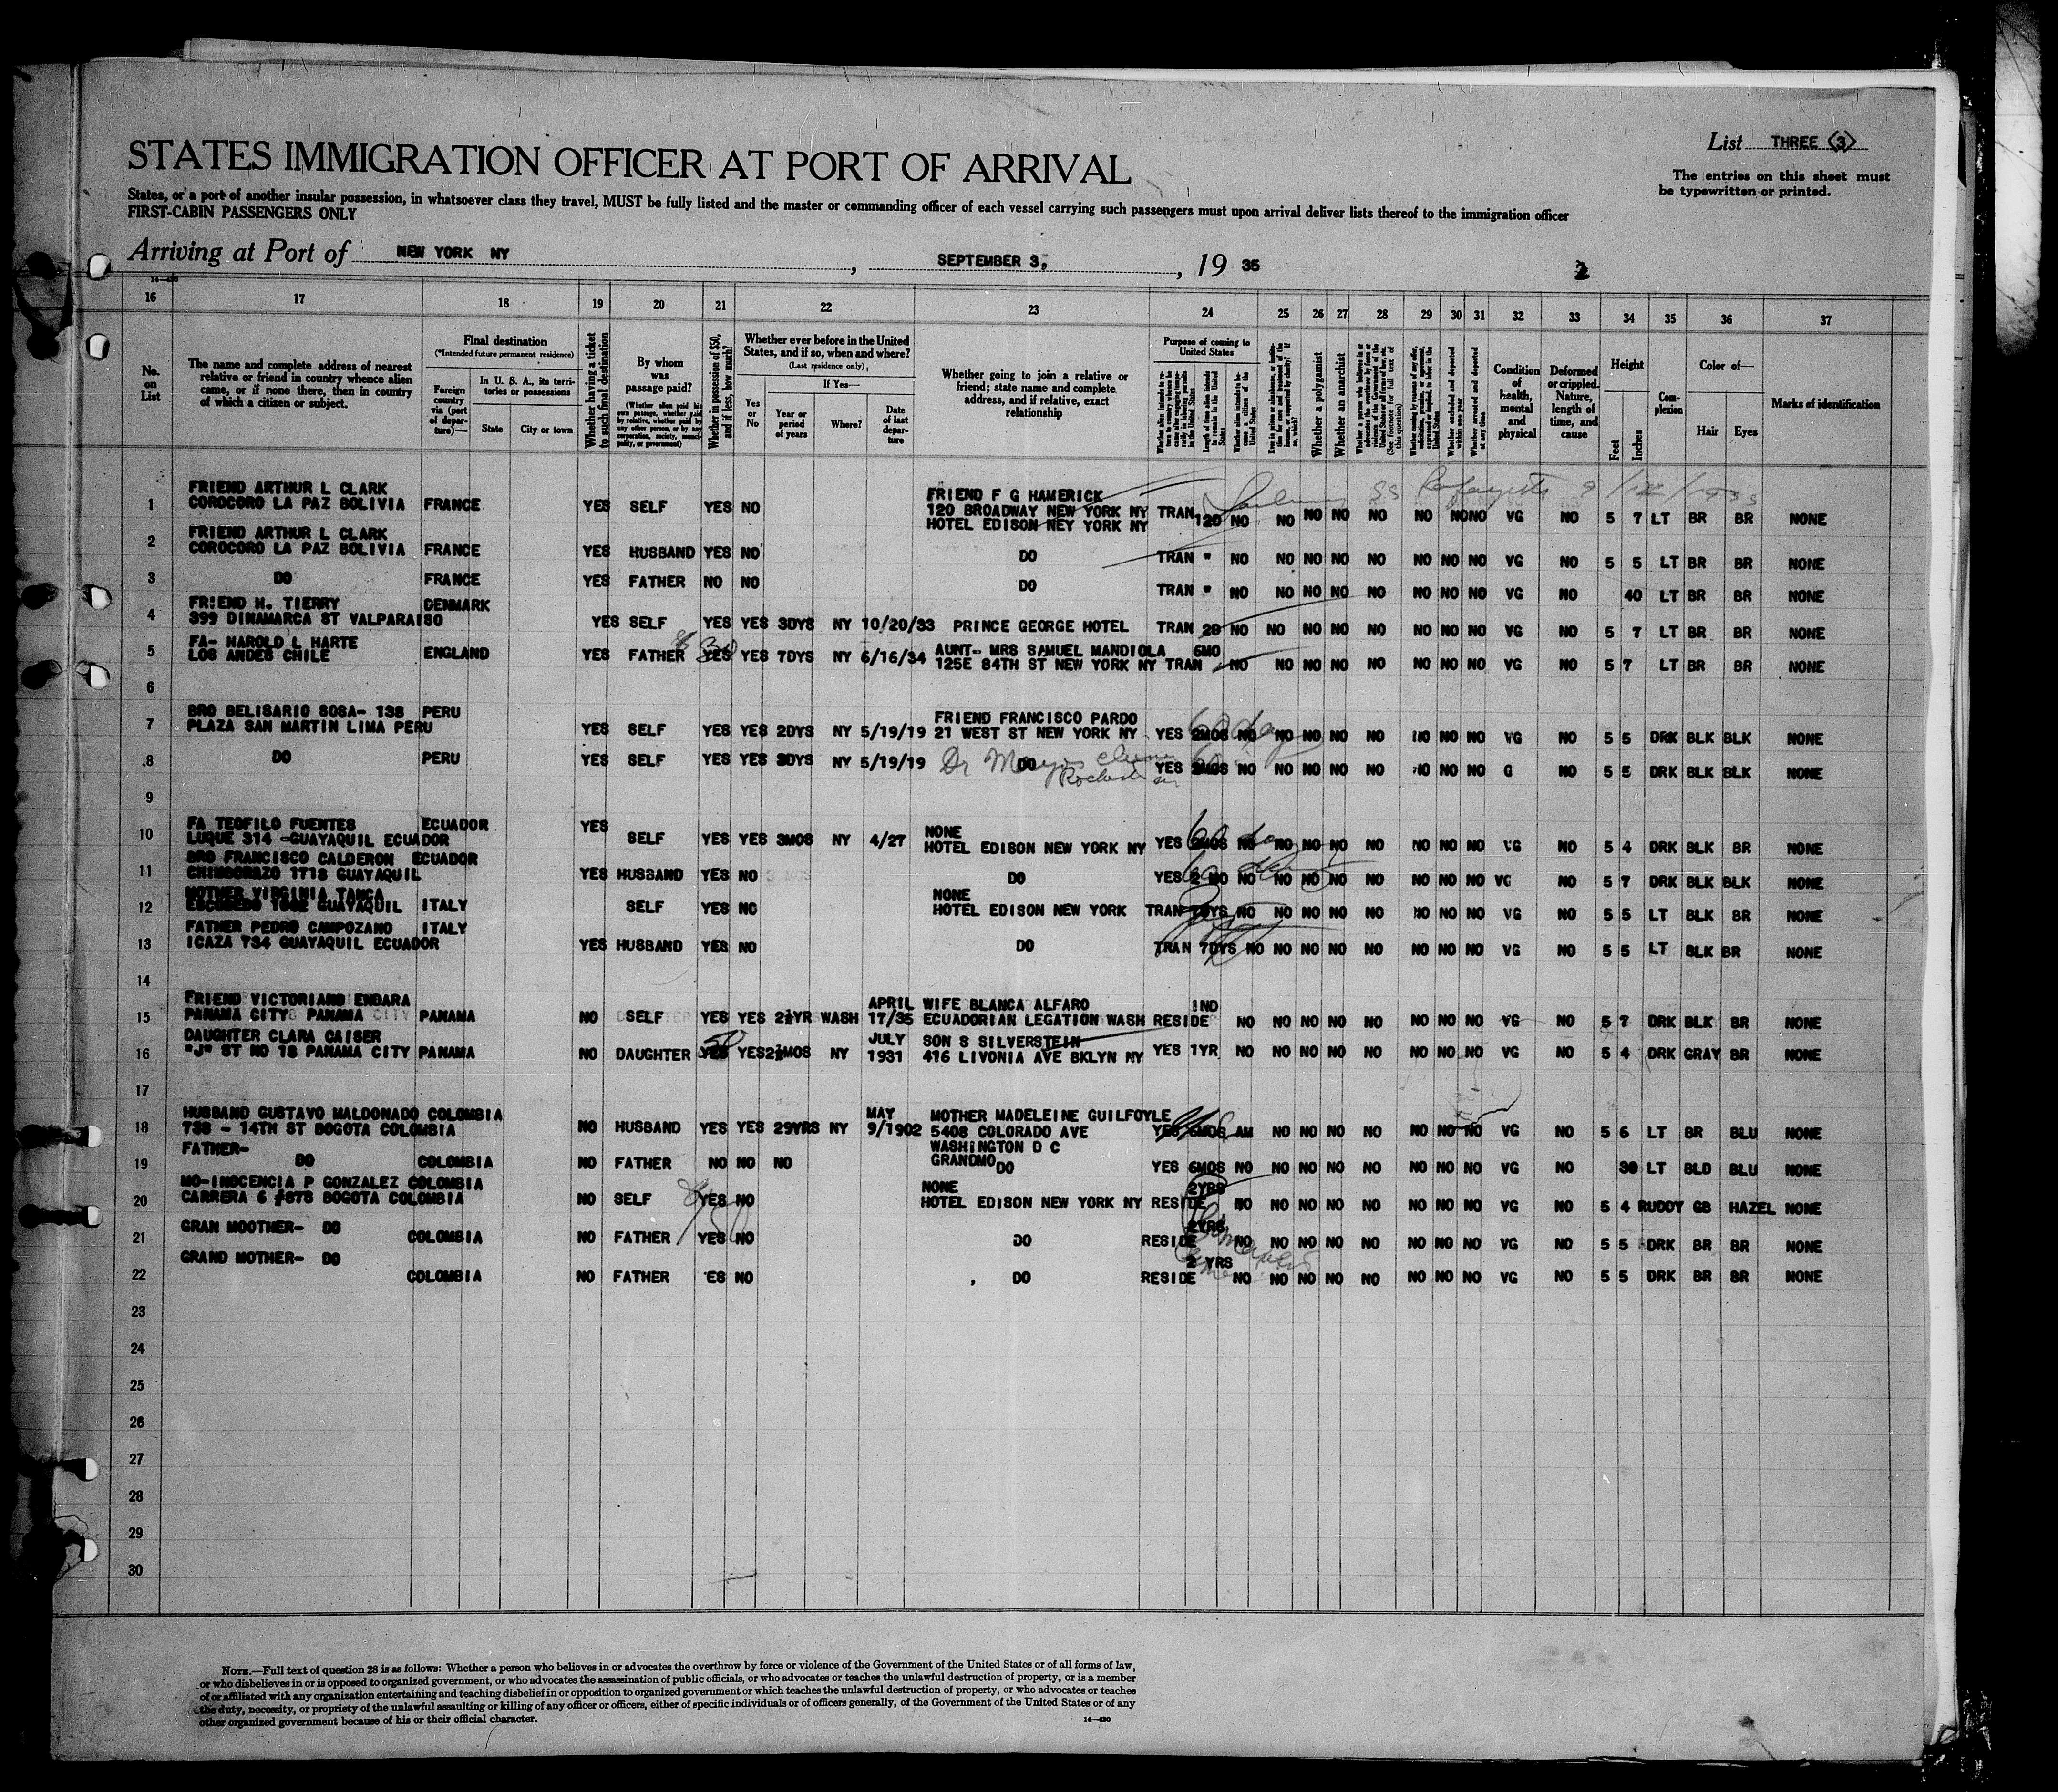 List THREE (3)
The entries on this sheet must
be typewritten or printed.
STATES IMMIGRATION OFFICER AT PORT OF ARRIVAL
States, or a port of another insular possession, in whatsoever class they travel, MUST be fully listed and the master or commanding officer of each vessel carrying such passengers must upon arrival deliver lists thereof to the immigration officer
FIRST-CABIN PASSENGERS ONLY
Arriving at Port of NEW YORK NY, SEPTEMBER 3, 19 35
2
16 17 18 19 20 21 22 23 24 25 26 27 28 29 30 31 32 33 34 35 36 37
No. on List
The name and complete address of nearest relative or friend in country whence alien came, or if none there, then in country of which a citizen or subject.
Final destination
(*Intended future permanent residence)
Foreign country via (port of departure)—
In U. S. A., its territories or possessions
State
City or town
Whether having a ticket to such final destination
By whom was passage paid?
(Whether alien paid his own passage, whether paid by relative, whether paid by any other person, or by any corporation, society, municipality, or government)
Whether in possession of $50, and if less, how much?
Whether ever before in the United States, and if so, when and where?
(Last residence only)
Yes or No
If Yes—
Year or period of years
Where?
Date of last departure
Whether going to join a relative or friend; state name and complete address, and if relative, exact relationship
Purpose of coming to United States
Whether a polygamist
Whether an anarchist
Condition of health, mental and physical
Deformed or crippled. Nature, length of time, and cause
Height
Feet
Inches
Complexion
Color of—
Hair
Eyes
Marks of identification
FRIEND ARTHUR L CLARK FRIEND F G HAMERICK
1 COROCORO LA PAZ BOLIVIA FRANCE YES SELF YES NO 120 BROADWAY NEW YORK NY TRAN 120 NO NO NO NO NO NO NO NO VG NO 5 7 LT BR BR NONE
HOTEL EDISON NEY YORK NY
FRIEND ARTHUR L CLARK
2 COROCORO LA PAZ BOLIVIA FRANCE YES HUSBAND YES NO DO TRAN " NO NO NO NO NO NO NO NO VG NO 5 5 LT BR BR NONE
3 DO FRANCE YES FATHER NO NO DO TRAN " NO NO NO NO NO NO NO NO VG NO 40 LT BR BR NONE
FRIEND H. TIERRY DENMARK
4 399 DINAMARCA ST VALPARAISO YES SELF YES YES 3DYS NY 10/20/33 PRINCE GEORGE HOTEL TRAN 20 NO NO NO NO NO NO NO NO VG NO 5 7 LT BR BR NONE
FA- HAROLD L HARTE AUNT- MRS SAMUEL MANDIOLA 6MO
5 LOS ANDES CHILE ENGLAND YES FATHER YES YES 7DYS NY 6/16/34 125E 84TH ST NEW YORK NY TRAN NO NO NO NO NO NO NO NO VG NO 5 7 LT BR BR NONE
6
BRO BELISARIO SOSA- 138 PERU FRIEND FRANCISCO PARDO
7 PLAZA SAN MARTIN LIMA PERU YES SELF YES YES 2DYS NY 5/19/19 21 WEST ST NEW YORK NY YES 2MOS NO NO NO NO NO NO NO NO VG NO 5 5 DRK BLK BLK NONE
60 day
8 DO PERU YES SELF YES YES 3DYS NY 5/19/19 DO YES 2MOS NO NO NO NO NO NO NO NO G NO 5 5 DRK BLK BLK NONE
9
FA TEOFILO FUENTES ECUADOR YES NONE
10 LUQUE 314 -GUAYAQUIL ECUADOR SELF YES YES 3MOS NY 4/27 HOTEL EDISON NEW YORK NY YES 2MOS NO NO NO NO NO NO NO NO VG NO 5 4 DRK BLK BR NONE
BRO FRANCISCO CALDERON ECUADOR
11 CHIMBORAZO 1718 GUAYAQUIL YES HUSBAND YES NO DO YES 2 MO NO NO NO NO NO NO NO NO VG NO 5 7 DRK BLK BLK NONE
MOTHER VIRGINIA TANCA NONE
12 GUAYAQUIL ITALY SELF YES NO HOTEL EDISON NEW YORK TRAN 7DYS NO NO NO NO NO NO NO NO VG NO 5 5 LT BLK BR NONE
FATHER PEDRO CAMPOZANO ITALY
13 ICAZA 734 GUAYAQUIL ECUADOR YES HUSBAND YES NO DO TRAN 7DYS NO NO NO NO NO NO NO NO VG NO 5 5 LT BLK BR NONE
14
FRIEND VICTORIANO ENDARA APRIL WIFE BLANCA ALFARO IND
15 PANAMA CITY PANAMA PANAMA NO SELF YES YES 2½YR WASH 17/35 ECUADORIAN LEGATION WASH RESIDE NO NO NO NO NO NO NO NO VG NO 5 7 DRK BLK BR NONE
DAUGHTER CLARA CAISER JULY SON S SILVERSTEIN
16 "J" ST NO 18 PANAMA CITY PANAMA NO DAUGHTER YES YES 2½MOS NY 1931 416 LIVONIA AVE BKLYN NY YES 1YR NO NO NO NO NO NO NO NO VG NO 5 4 DRK GRAY BR NONE
17
HUSBAND GUSTAVO MALDONADO COLOMBIA MAY MOTHER MADELEINE GUILFOYLE
18 738 - 14TH ST BOGOTA COLOMBIA NO HUSBAND YES YES 29YRS NY 9/1902 5408 COLORADO AVE YES 6MOS AM NO NO NO NO NO NO NO VG NO 5 6 LT BR BLU NONE
WASHINGTON D C
FATHER- GRANDMO
19 DO COLOMBIA NO FATHER NO NO NO DO YES 6MOS NO NO NO NO NO NO NO NO VG NO 39 LT BLD BLU NONE
MO-INOCENCIA P GONZALEZ COLOMBIA NONE 2YRS
20 CARRERA 6 #878 BOGOTA COLOMBIA NO SELF YES NO HOTEL EDISON NEW YORK NY RESIDE NO NO NO NO NO NO NO NO VG NO 5 4 RUDDY GB HAZEL NONE
GRAN MOOTHER- DO 2YRS
21 COLOMBIA NO FATHER YES NO DO RESIDE NO NO NO NO NO NO NO NO VG NO 5 5 DRK BR BR NONE
GRAND MOTHER- DO 2 YRS
22 COLOMBIA NO FATHER ES NO DO RESIDE NO NO NO NO NO NO NO NO VG NO 5 5 DRK BR BR NONE
23
24
25
26
27
28
29
30
NOTE.—Full text of question 28 is as follows: Whether a person who believes in or advocates the overthrow by force or violence of the Government of the United States or of all forms of law,
or who disbelieves in or is opposed to organized government, or who advocates the assassination of public officials, or who advocates or teaches the unlawful destruction of property, or is a member
of or affiliated with any organization entertaining and teaching disbelief in or opposition to organized government or which teaches the unlawful destruction of property, or who advocates or teaches
the duty, necessity, or propriety of the unlawful assaulting or killing of any officer or officers, either of specific individuals or of officers generally, of the Government of the United States or of any
other organized government because of his or their official character.
14—430